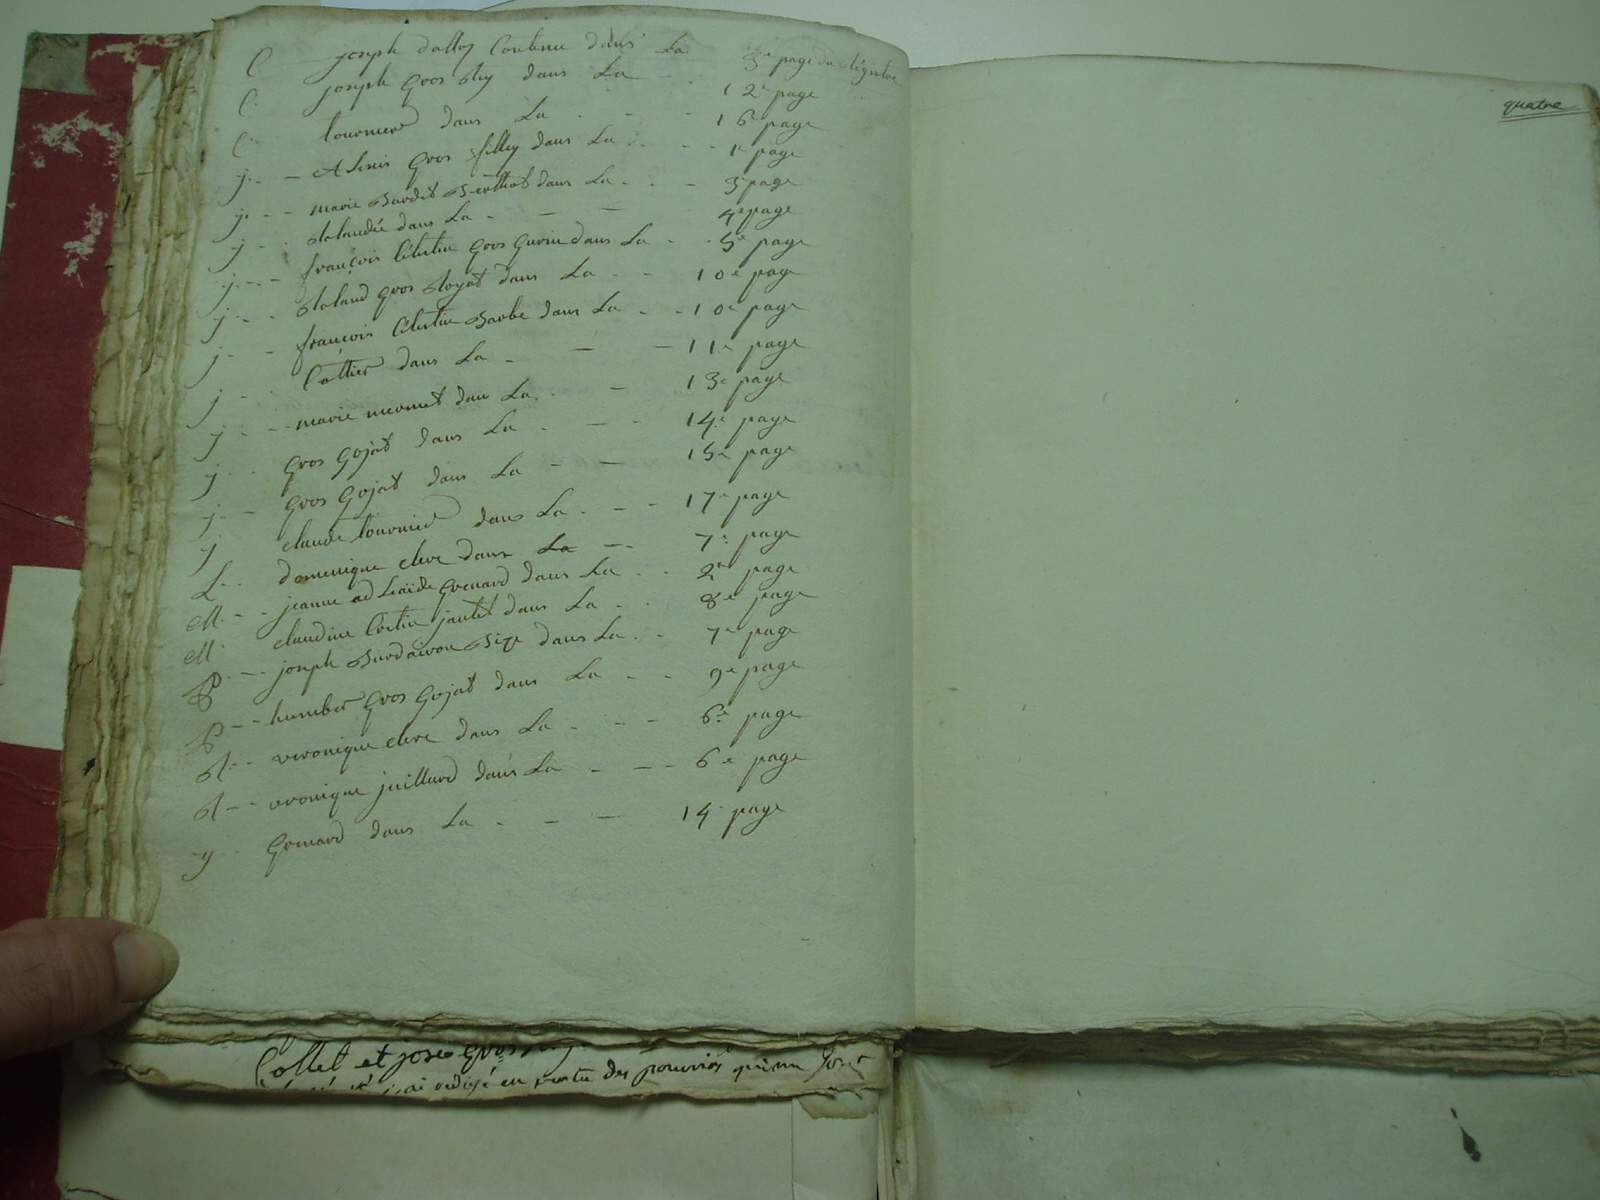 C joseph dalloz Contenu dans La 3e page du Régistre
C joseph Gros Rey dans La 12e page
C tournier dans La 16e page
j Alexis Gros filley dans La 1e page
j marie Burdet Berthet dans La 3e page
j dans La 4e page
j françois Célestin Gros Gurin dans La 5e page
j Roland Gros Royat dans La 10e page
j françois Célestin Barbe dans La 10e page
j Cottier dans La 11e page
j marie mermet dan La 13e page
j Gros Gojat dans La 14e page
j Gros Gojat dans La 15e page
j claude tournier dans La 17e page
L domenique clerc dans La 7e page
M jeanne adelaïde Grenard dans La 2e page
M claudine dans La 8e page
P joseph dans La 7e page
P humber Gros Gojat dans La 9e page
R veronique clerc dans La 6e page
R vronique juillard dans La 6e page
y Grenard dans La 14e page
quatre
Collet et jose Gros
j'ai rédigé en vertu des pouvoirs qui me sont